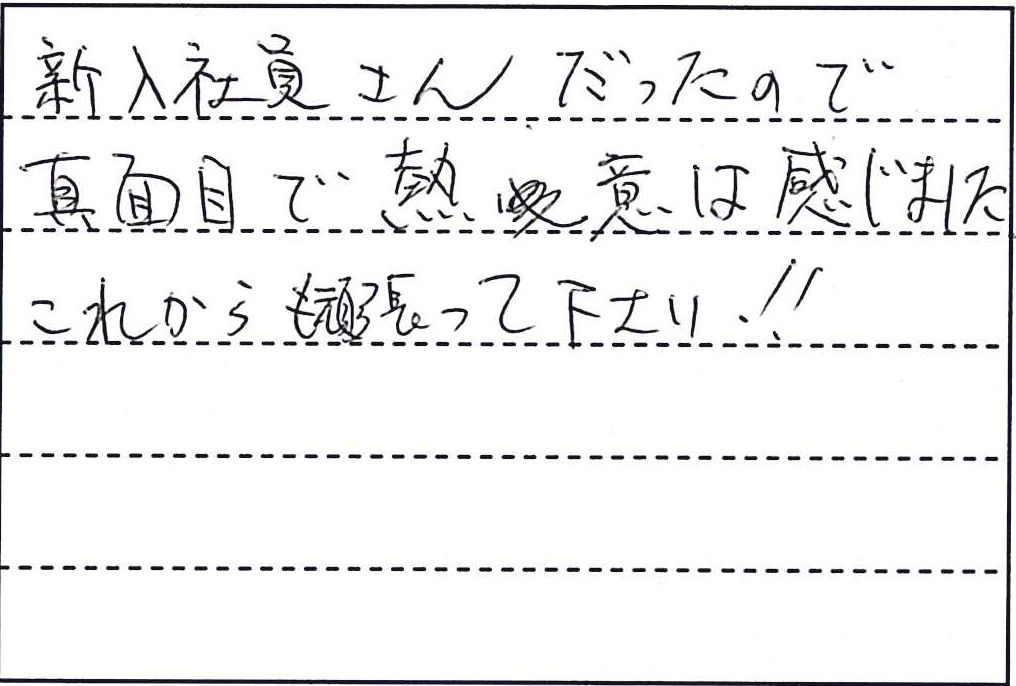 新入社員さんだったので
真面目で熱意は感じました
これからも頑張って下さい!!